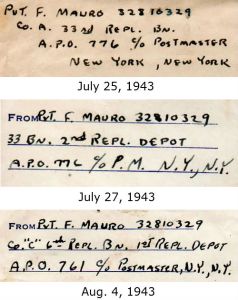 PVT. F. MAURO 32810329
CO. A. 33rd REPL. BN.
A.P.O. 776 c/o POSTMASTER
NEW YORK, NEW YORK
July 25, 1943
FROM PVT. F. MAURO 32810329
33 BN. 2nd REPL. DEPOT
A.P.O. 776 c/o P.M. N.Y., N.Y.
July 27, 1943
FROM PVT. F. MAURO 32810329
Co. "C" 6th REPL. BN. 1st REPL. DEPOT
A.P.O. 761 c/o POSTMASTER, N.Y., N.Y.
Aug. 4, 1943